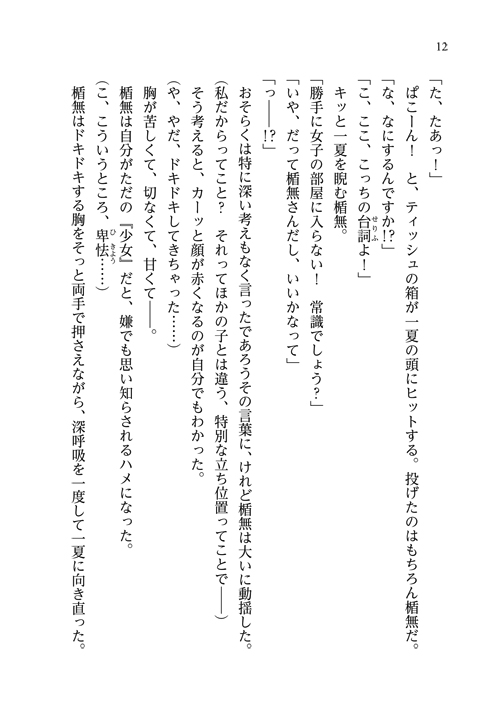 12
「た、たあっ！」
ぱこーん！　と、ティッシュの箱が一夏の頭にヒットする。投げたのはもちろん楯無だ。
「な、なにするんですか!?」
「こ、ここ、こっちの台詞よ！」
せりふ
キッと一夏を睨む楯無。
「勝手に女子の部屋に入らない！　常識でしょう？」
「いや、だって楯無さんだし、いいかなって」
「っ――!?」
おそらくは特に深い考えもなく言ったであろうその言葉に、けれど楯無は大いに動揺した。
（私だからってこと？　それってほかの子とは違う、特別な立ち位置ってことで――）
そう考えると、カーッと顔が赤くなるのが自分でもわかった。
（や、やだ、ドキドキしてきちゃった……）
胸が苦しくて、切なくて、甘くて――。
楯無は自分がただの『少女』だと、嫌でも思い知らされるハメになった。
（こ、こういうところ、卑怯……）
ひきょう
楯無はドキドキする胸をそっと両手で押さえながら、深呼吸を一度して一夏に向き直った。